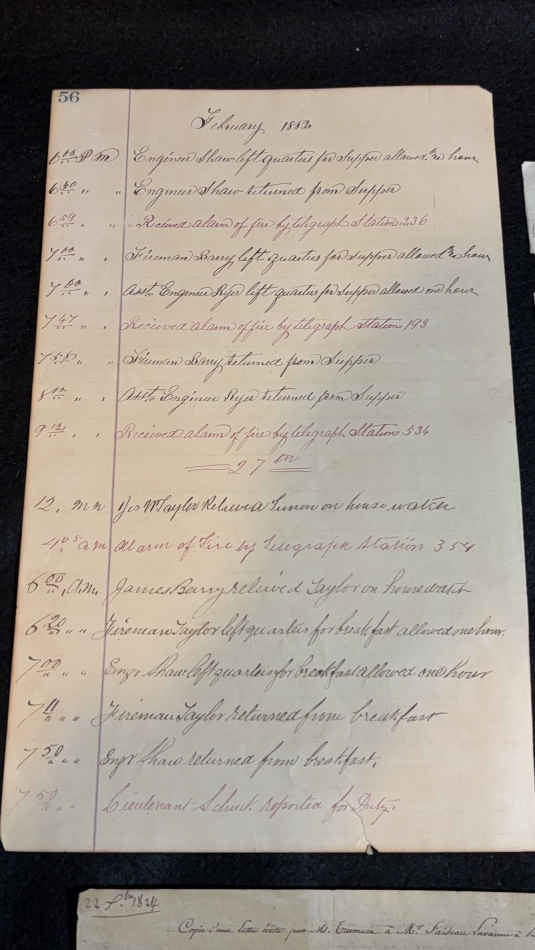 56
February 1882
6 00 P m Engineer Shaw left quarters for Supper allowed one hour
6 40 " " Engineer Shaw returned from Supper
6 59 " " Recieved alarm of fire by telegraph Station 236
7 00 " " Fireman Barry left quarters for Supper allowed one hour
7 00 " " Asst. Engineer Ryer left quarters for Supper allowed one hour
7 47 " " Recieved alarm of fire by telegraph Station 193
7 " " Fireman Barry returned from Supper
8 00 " " Asst. Engineer Ryer returned from Supper
9 " " Recieved alarm of fire by telegraph Station 534
27th
12. M n Taylor Relieved on house watch
4 05 a m Alarm of Fire by Telegraph Station 354
6 00 A.M. James Barry relieved Taylor on house watch
6 20 " " Fireman Taylor left quarters for breakfast allowed one hour.
7 00 " " Engr Shaw left quarters for breakfast allowed one hour
7 11 " " Fireman Taylor returned from breakfast
7 50 " " Engr Shaw returned from breakfast.
7 50 " " Lieutenant Schuck reported for Duty.
22 1824
Copie d'une lettre écrite par M. à Mr.